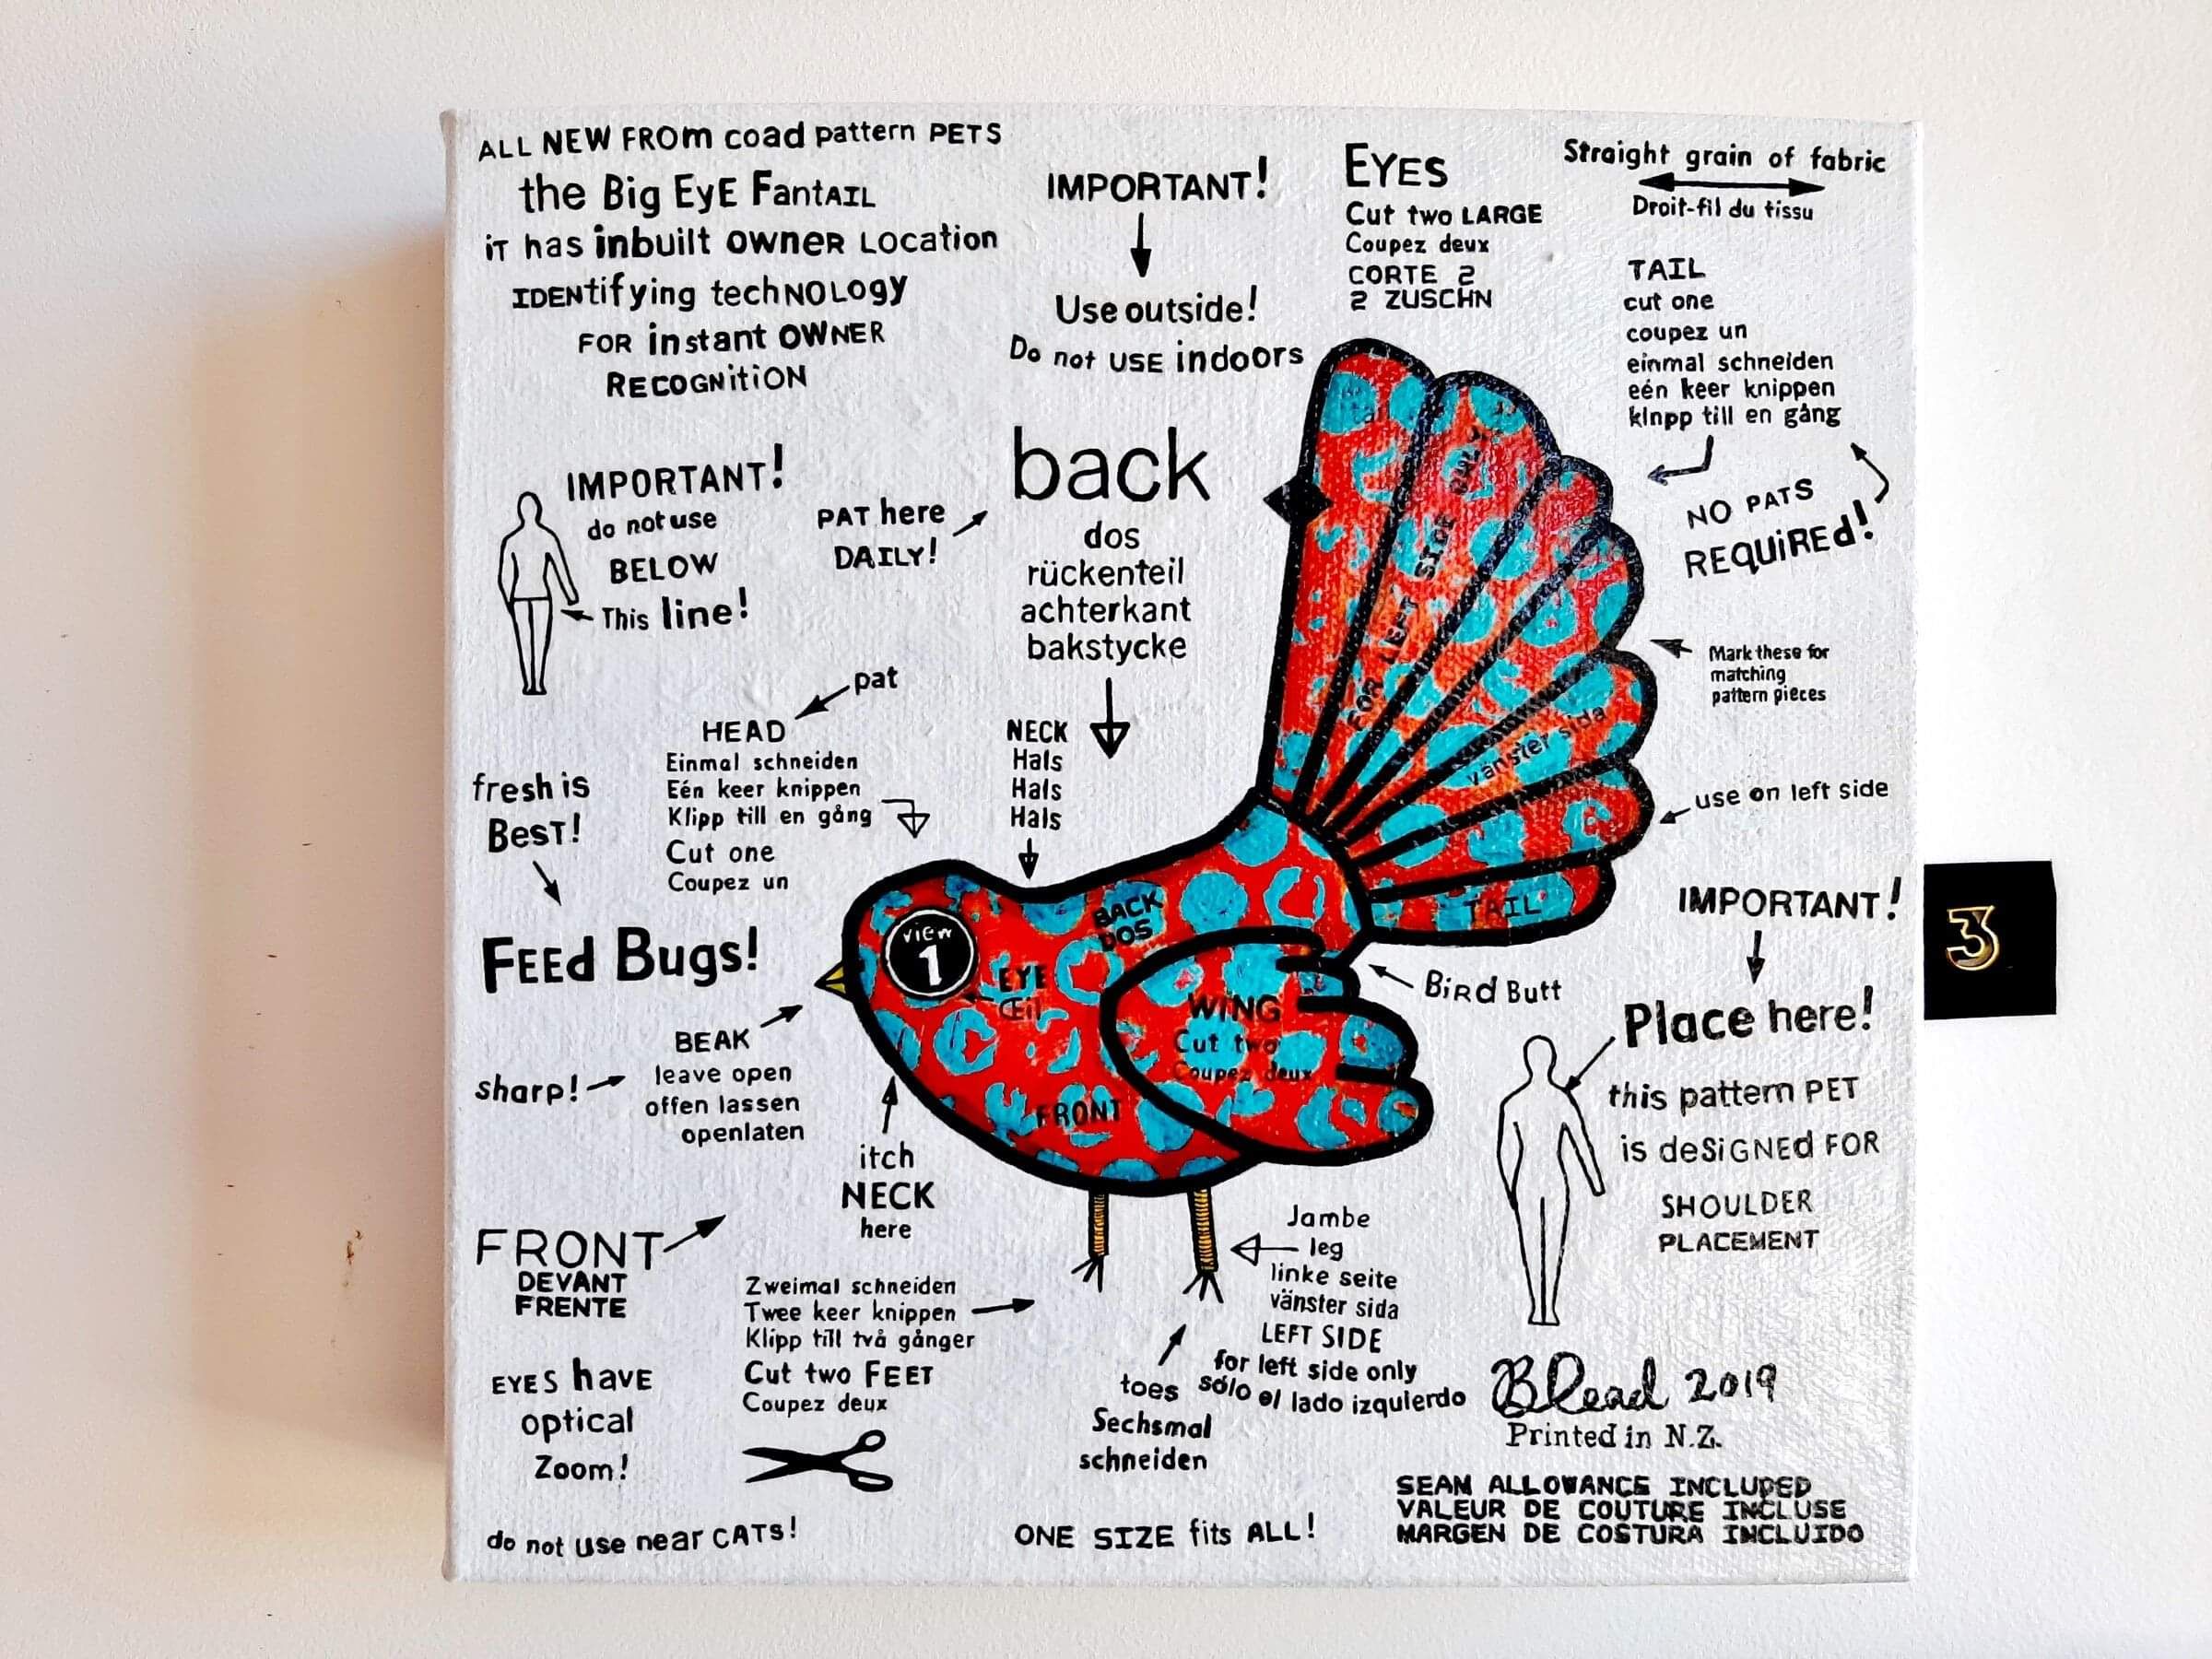 ALL NEW FROM coad pattern PETS
the Big EyE FantAIL
iT has inbuilt OWNER Location
IDENtifying techNOLogy
FOR instant OWNER
RECOGNitiON
IMPORTANT!
Use outside!
Do not USE indoors
EYES
Cut two LARGE
Coupez deux
CORTE 2
2 ZUSCHN
Straight grain of fabric
Droit-fil du tissu
TAIL
cut one
coupez un
einmal schneiden
eén keer knippen
klnpp till en gång
NO PATS
REQUiREd!
IMPORTANT!
do not use
BELOW
This line!
PAT here
DAILY!
back
dos
rückenteil
achterkant
bakstycke
Mark these for
matching
pattern pieces
use on left side
pat
HEAD
Einmal schneiden
Eén keer knippen
Klipp till en gång
Cut one
Coupez un
NECK
Hals
Hals
Hals
fresh is
BesT!
FEEd Bugs!
tail
FOR LEFT SIDE ONLY
vänster sida
TAIL
BACK
DOS
view
1
EYE
Œil
WING
Cut two
Coupez deux
FRONT
Bird Butt
BEAK
leave open
offen lassen
openlaten
sharp!
itch
NECK
here
IMPORTANT!
Place here!
this pattern PET
is deSiGNEd FOR
SHOULDER
PLACEMENT
3
FRONT
DEVANT
FRENTE
Zweimal schneiden
Twee keer knippen
Klipp till två gånger
Cut two FEET
Coupez deux
Jambe
leg
linke seite
vänster sida
LEFT SIDE
for left side only
sólo el lado izquierdo
toes
Sechsmal
schneiden
EYES havE
optical
Zoom!
do not use near CATs!
ONE SIZE fits ALL!
BLead 2019
Printed in N.Z.
SEAM ALLOWANCE INCLUDED
VALEUR DE COUTURE INCLUSE
MARGEN DE COSTURA INCLUIDO